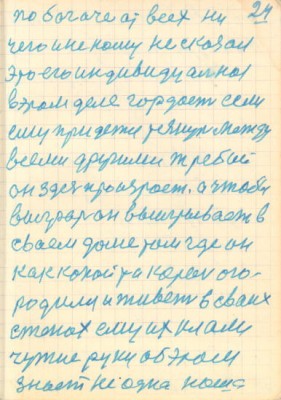 24
по богаче от всех ни
чего и не кому не сказал
Это его индивидуалная
в этом деле гордость если
ему придется тянут между
всеми другими жребой
он здес проиграет. а чтобы
выграл он выигрывает в
своем доме там где он
как какой та карол ого-
родили и живёт в сваих
стенах ему их клали
чужие руки об этом
знает ни одна наша